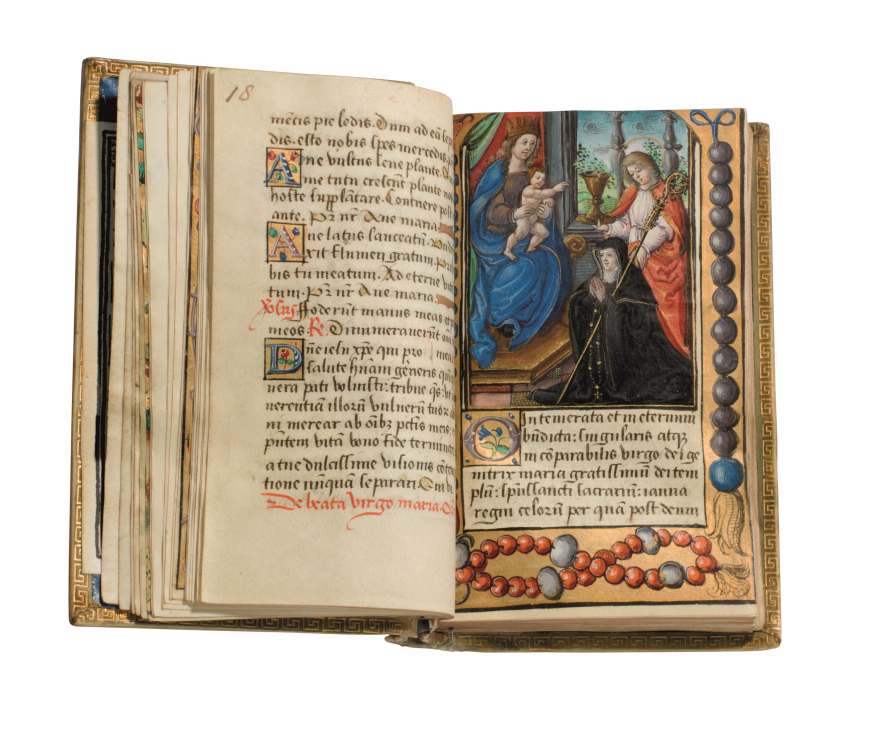 18
mētis pie ledis. Dum ad eā
dis. esto nobis spes mercedis
Ave vultus lene plante.
me tutū crescūt plante
hoste supplātare. Conterere post
ante. Pr̄ nr̄ Ave maria
Ave latus lanceatū
xit flumen gratum
bis tu meatum. Ad eterne
tum. Pr̄ nr̄ Ave maria.
foderūt manus meas et
meos. Re. Dinumeraverūt
Dn̄e iesu xp̄e qui pro
salute humani generis
vera pati voluisti: tribue qs̄
nerentiā illorū vulnerū tuor
ni merear ab oībz pctīs meis
pn̄tem vitā bono fide termina
a tue dulcissime visionis
tione nūquā separari. Qui
De beata virgo maria.
O intemerata et in eternum
bn̄dicta: singularis atq̨
incōparabilis virgo dei ge
nitrix maria gratissimum dei tem
plū: spūssancti sacrariū: ianua
regni celorū per quā post deum